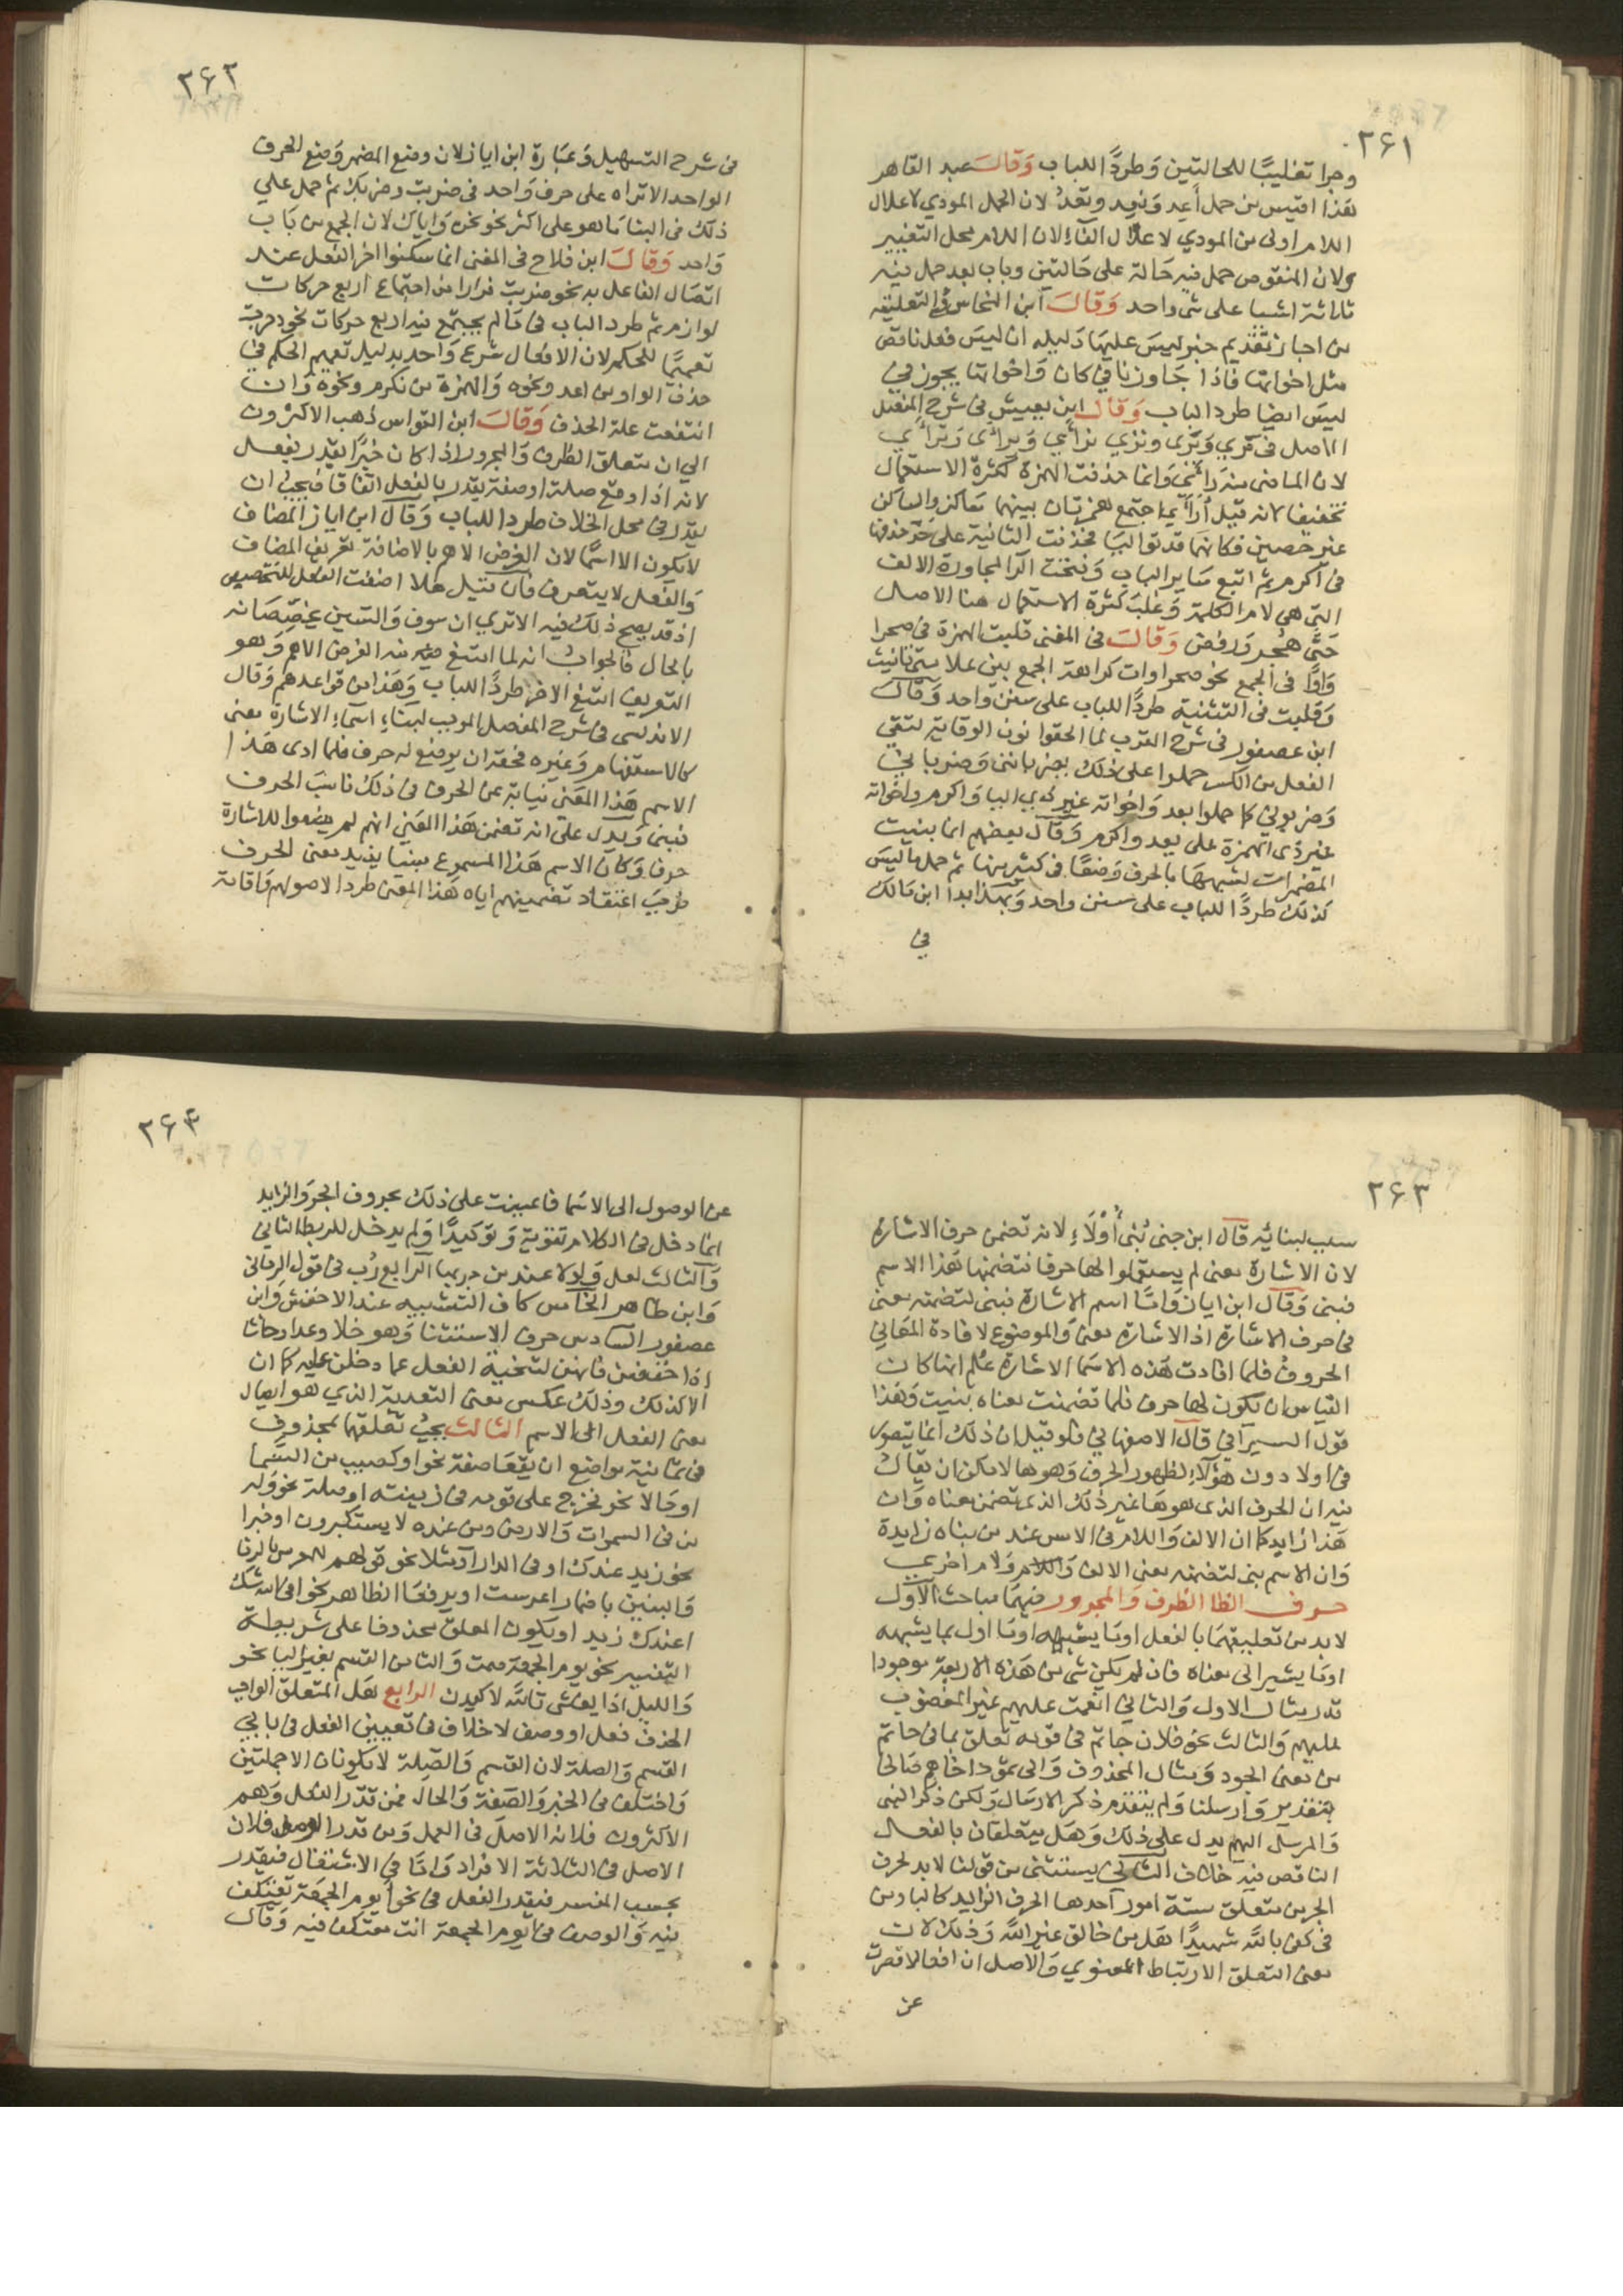 ٢٦١
وجرا تغليبًا للحالتين وَطردًا للباب وَقالَ عبد القاهر
هذا اقيس من حمل أعِد وَنعِد وتعِد لان الحمل المودي لاعلال
اللام اولى من المودي لاعلال الفاء لان اللام محل التغيير
ولان المنقوص حمل فيه حَالة على حَالتين وباب يعد حمل فيه
ثلاثة اشيا على شي واحد وَقالَ ابن النحاس في التعليقه
من اجاز تقديم خبر ليسَ عليهَا دَليله ان ليسَ فعل ناقص
مثل اخواتها فاذا جَاوزنا في كان وَاخواتها يجوز في
ليسَ ايضا طردا لباب وَقال ابن يعيش في شرح المفصل
الاصل في تري وَيَرَى ونَرَي نرأي وَيرأى وَترأي
لان الماضى منه رَأى وَانما حذفت الهمزة لكثرة الاستعمال
تخفيفا لانه قيل أرأي اجتمع همزتان بينهما سَاكن والساكن
غير حصين فكانهما قد توَاليَا فحذفت الثانية على حَدّ حذفها
في اكرم ثم اتبع سَاير الباب وَفتحت الرا لمجاورة الالف
التي هي لام الكلمة وَغلبَ كثرة الاستعمال هنا الاصل
حَتَّى هُجر وَرفض وَقالَ في المغنى قلبت الهمزة في صحرا
وَاوًا في الجمع نحو صحراوات كراهة الجمع بين علامتي تانيث
وَقلبت في التثنية طردًا للباب على سنن واحد وَقالَ
ابن عصفور في شرح المقرب لما الحقوا نون الوقاية لتقي
الفعل من الكسر حملوا على ذلك يضربانني وَضربا ني
وَضربوني كما حملوا يعد وَاخواته غير ذي اليا وَاكرم واخواته
غير ذي الهمزة على يعد واكرم وَقال بعضهم انما بنيت
المضمرات لشبههَا بالحرف وَضعًا في كثير منها ثم حمل ما ليسَ
كذلك طردًا للباب على سنن واحد وَبهذا ابدا ابن مَالك
في
٢٦٢
في شرح التسهيل وَعبَارة ابن اياز لان وضع المضمر وَضع الحرف
الواحد الا تراه على حرف وَاحد في ضربت وضربك ثم حمل على
ذلك في البنا مَا هو على اكثر نحو نحن وَاياك لان الجمع من بَاب
وَاحد وَقالَ ابن فلاح في المغنى انما سكنوا اخر الفعل عند
اتصَال الفاعل به نحو ضربت فرارا من اجتماع اربع حركات
لوازم ثم طرد الباب في مَا لم يجتمع فيه اربع حركات نحو دحرجت
تعميمًا للحكم لان الافعال شرع وَاحد بدليل تعميم الحكم في
حذف الواو من اعد ونحوه وَالهمزة من نكرم ونحوه وَان
انتفت علة الحذف وَقالَ ابن القواس ذهب الاكثرون
الي ان متعلق الظرف وَالمجرور اذا كان خبرًا يقدر بفعل
لانه اذا وقع صلة او صفة يقدر بالفعل اتفاقا فيجب ان
يقدر في محل الخلاف طردا للباب وَقال ابن اياز المضاف
لا يكون الا اسمًا لان الغرض الاهم بالاضافة تعريف المضاف
وَالفعل لا يتعرف فان قيل هلا اضفت الفعل للتخصيص
اذ قد يصح ذلك فيه الا تري ان سوف وَالسين يخصّصَانه
بالحال فالجواب انه لما امتنع فيه منه الغرض الاهم وَهو
التعريف امتنع الاخر طردًا للباب وَهذا من قواعدهم وَقال
الاندلسى في شرح المفصل الموجب لبناءِ اسماءِ الاشارة معنى
كالاستفهام وَغيره فحقه ان يوضع له حرف فلما ادى هَذا
الاسم هَذا المعَنى نيابة عن الحرف في ذلك ناسَبَ الحرف
فبنى وَيدل على انه تضمن هَذا المعَني انهم لم يضعوا للاشارة
حرفا وَكان الاسم هَذا المسموع مبنيا يفيد معنى الحرف
فوَجبَ اعتقاد تضمينهم اياه هَذا المعَنى طردا لاصولهم وَاقامة
٢٦٣
سبب لبنائِه قال ابن جنى بُني أُوْلَاءِ لانه تضمن حرف الاشارة
لان الاشارة معنى لم يستعملوا لها حرفا فتضمنها هَذا الاسم
فبنى وَقال ابن اياز وَامّا اسم الاشارة فبنى لتضمنه معنى
في حرف الاشارة اذ الاشارة معنى وَالموضوع لافادة المعَاني
الحروف فلما افادت هَذه الاسمَا الاشارة علم انها كان
القياس ان يكون لها حرف فلما تضمنت معناه بنيت وَهَذا
قول السيرافي قال الاصفهاني فلو قيل ان ذلك انما يتصور
في اولا دون هؤلاء لظهور الحرف وَهو ها لا مكن ان يقال
فيه ان الحرف الذى هو هَا غير ذلك الذى تضمن معناه وَان
هَذا زايد كما ان الالف وَاللام في الامس عند من بناه زايدة
وَان الاسم بنى لتضمنه معنى الالف وَاللام وَلام اخري
حرف الظا الظرف وَالمجرور فيهمَا مباحث الاول
لابد من تعليقهمَا بالفعل اومَا يشبهه اومَا اول بما يشبهه
اومَا يشير الى معناه فان لم يكن شي من هَذه الاربعة موجودا
قدر مثال الاول وَالثاني انعمت عليهم غير المغضوب
عليهم وَالثالث نحو فلان حاتم في قومه تعلق بما في حاتم
من معنى الجود وَمثال المحذوف وَالى ثمود اخاهم صَالحا
بتقدير وَارسلنا وَلم يتقدم ذكر الارسَال وَلكن ذكر النبى
وَالمرسل اليهم يدل على ذلك وَهَل يتعلقان بالفعل
الناقص فيه خلاف الثاني يستثنى من قولنا لابد لحرف
الجر من متعلق ستة امور احدها الحرف الزايد كالبا ومن
في كفى بالله شهيدًا هَل من خالق غير الله وَذلك لان
معنى التعلق الارتباط المعنوي وَالاصل ان افعالا قصرت
عن
٢٦٤
عن الوصول الى الاسمَا فاعينت على ذلك بحروف الجر وَالزايد
انما دخل في الكلام تقوية وَتوكيدًا وَلم يدخل للربط الثاني
وَالثالث لعل وَلولا عند من جر بهما الرابع رُب في قول الرماني
وَابن طاهر الخامس كاف التشبيه عند الاخفش وَابن
عصفور السادس حرف الاستثنا وَهو خلا وعدا وحاشا
اذا خفضن فانهن لتنحية الفعل عما دخلن عليه كما ان
الا كذلك وذلك عكس معنى التعدية الذي هو ايصال
معنى الفعل الى الاسم الثالث يجب تعلقهمَا بمحذوف
في ثمانية مواضع ان يقعَا صفة نحو او كصيب من السَّمَا
اوحَالا نحو فخرج على قومه في زينته او صلة نحو وَله
من في السموات وَالارض ومن عنده لا يستكبرون او خبرا
نحو زيد عندك او في الدار او مثلا نحو قولهم للعرس بالرفا
وَالبنين باضمار اعرست او يرفعَا الظاهر نحو افي الله شك
اعندك زيد او يكون المعلق محذوفا على شريطة
التفسير نحو يوم الجمعَة صمت وَالثامن القسم بغير البا نحو
وَالليل اذا يغشى تالله لاكيدن الرابع هَل المتعلق الواجب
الحذف فعل او وصف لا خلاف في تعيين الفعل في بابي
القسم وَالصلة لان القسم وَالصِّلة لا يكونان الا جملتين
وَاختلف في الخبر وَالصَفة وَالحال فمن قدر الفعل وَهم
الاكثرون فلانه الاصل في العمل وَمن قدر الوصف فلان
الاصل في الثلاثة الافراد وَامّا في الاشتغال فيقدر
بحسب المفسر فيقدر الفعل في نحو ايوم الجمعة تعتكف
فيه وَالوصف في ايوم الجمعة انت معتكف فيه وَقال